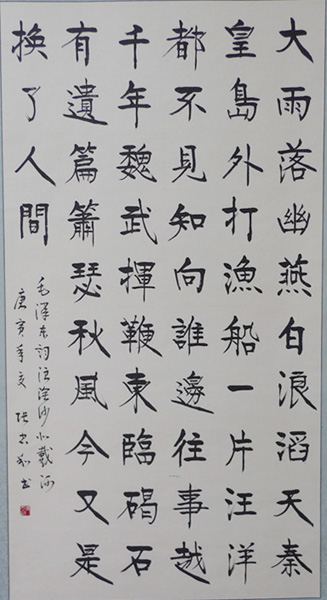 大雨落幽燕白浪滔天秦
皇島外打漁船一片汪洋
都不見知向誰邊往事越
千年魏武揮鞭東臨碣石
有遺篇簫瑟秋風今又是
換了人間
毛澤東詞浪淘沙北戴河
庚寅年夏 張書